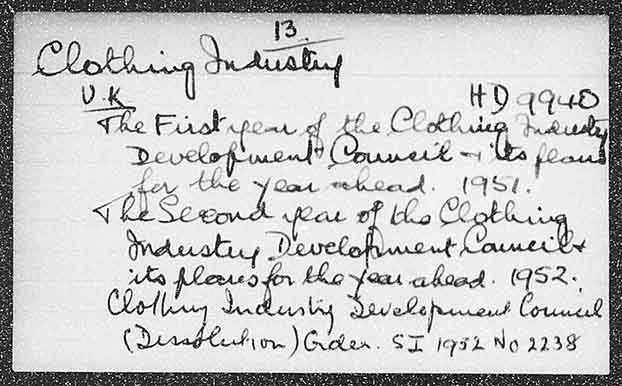 13.
Clothing Industry
U.K
HD 9940
The First year of the Clothing Industry
Development Council & its plans
for the year ahead. 1951.
The Second year of the Clothing
Industry Development Council &
its plans for the year ahead. 1952.
Clothing Industry Development Council
(Dissolution) Order. SI 1952 No 2238